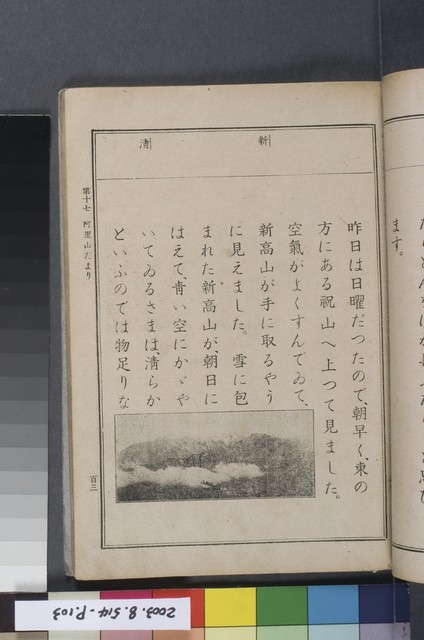 新
清
昨日は日曜だつたので、朝早く、東の
方にある祝山へ上つて見ました。
空氣がよくすんでゐて、
新高山が手に取るやう
に見えました。雪に包
まれた新高山が、朝日に
はえて、靑い空にかゞや
いてゐるさまは、淸らか
といふのでは物足りな
第十七 阿里山だより
百三
ます。
2003.8.514-P.103